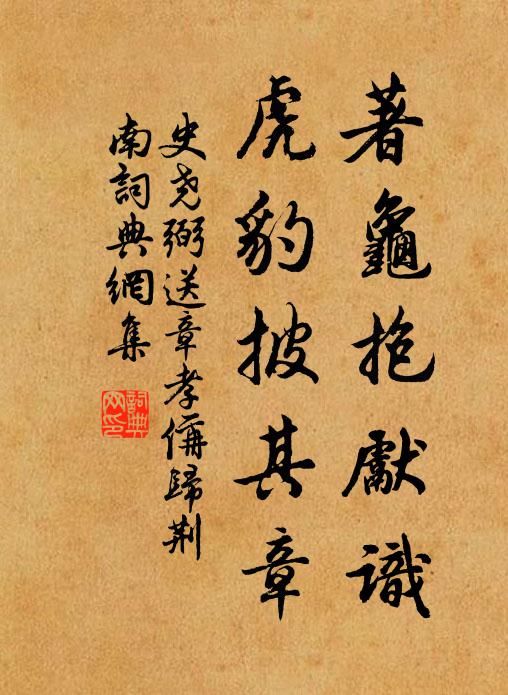 著龜抱獻識
虎豹披其章
史尧弼送章孝偁歸荆
南詞典網集
詞典
网印